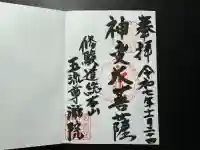 奉拝 令和七年二月二十四
神変大菩薩
修験道総本山
五流尊瀧院